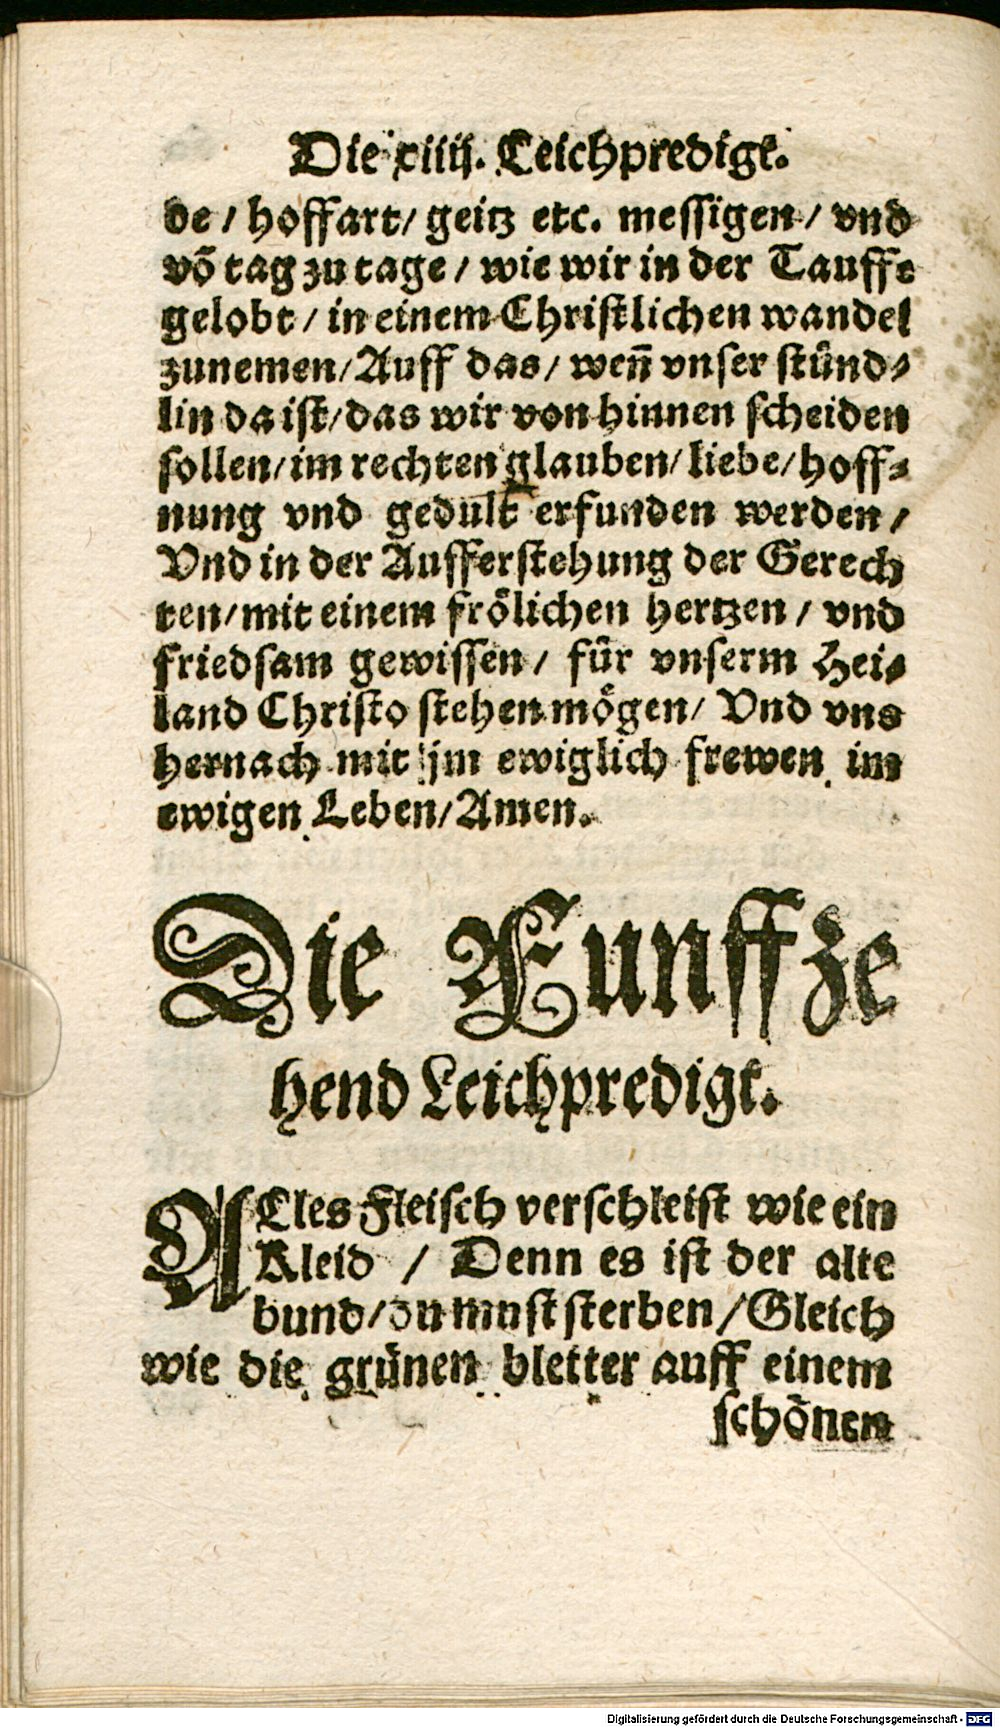 Die xiiij. Leichpredigt.
de / hoffart / geitz etc. messigen / vnd
võ tag zu tage / wie wir in der Tauffe
gelobt / in einem Christlichen wandel
zunemen / Auff das / weñ vnser stünd-
lin da ist / das wir von hinnen scheiden
sollen / im rechten glauben / liebe / hoff-
nung vnd gedult erfunden werden /
Vnd in der Aufferstehung der Gerech
ten / mit einem frölichen hertzen / vnd
friedsam gewissen / für vnserm Hei-
land Christo stehen mögen / Vnd vns
hernach mit jm ewiglich frewen im
ewigen Leben / Amen.
Die Funffze
hend Leichpredigt.
ALles Fleisch verschleist wie ein
Kleid / Denn es ist der alte
bund / du must sterben / Gleich
wie die grünen bletter auff einem
schönen
Digitalisierung gefördert durch die Deutsche Forschungsgemeinschaft - DFG